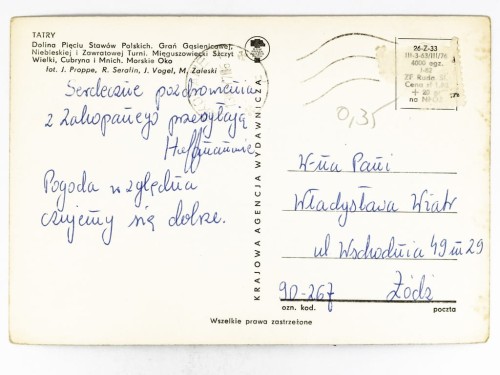 TATRY
Dolina Pięciu Stawów Polskich. Grań Gąsienicowej,
Niebieskiej i Zawratowej Turni. Mięguszowiecki Szczyt
Wielki, Cubryna i Mnich. Morskie Oko
fot. J. Proppe, R. Serafin, J. Vogel, M. Zaleski
Serdeczne pozdrowienia
z Zakopanego przesyłają
Hoffmanowie
Pogoda względna
czujemy się dobrze.
KRAJOWA AGENCJA WYDAWNICZA
26-Z-33
III-3-63/III/76
4000 egz.
I-82
Cena zł
na NFOZ
0,35
W-na Pani
Władysława Wiatr
ul Wschodnia 49 m 29
90-267 Łódź
ozn. kod. poczta
Wszelkie prawa zastrzeżone